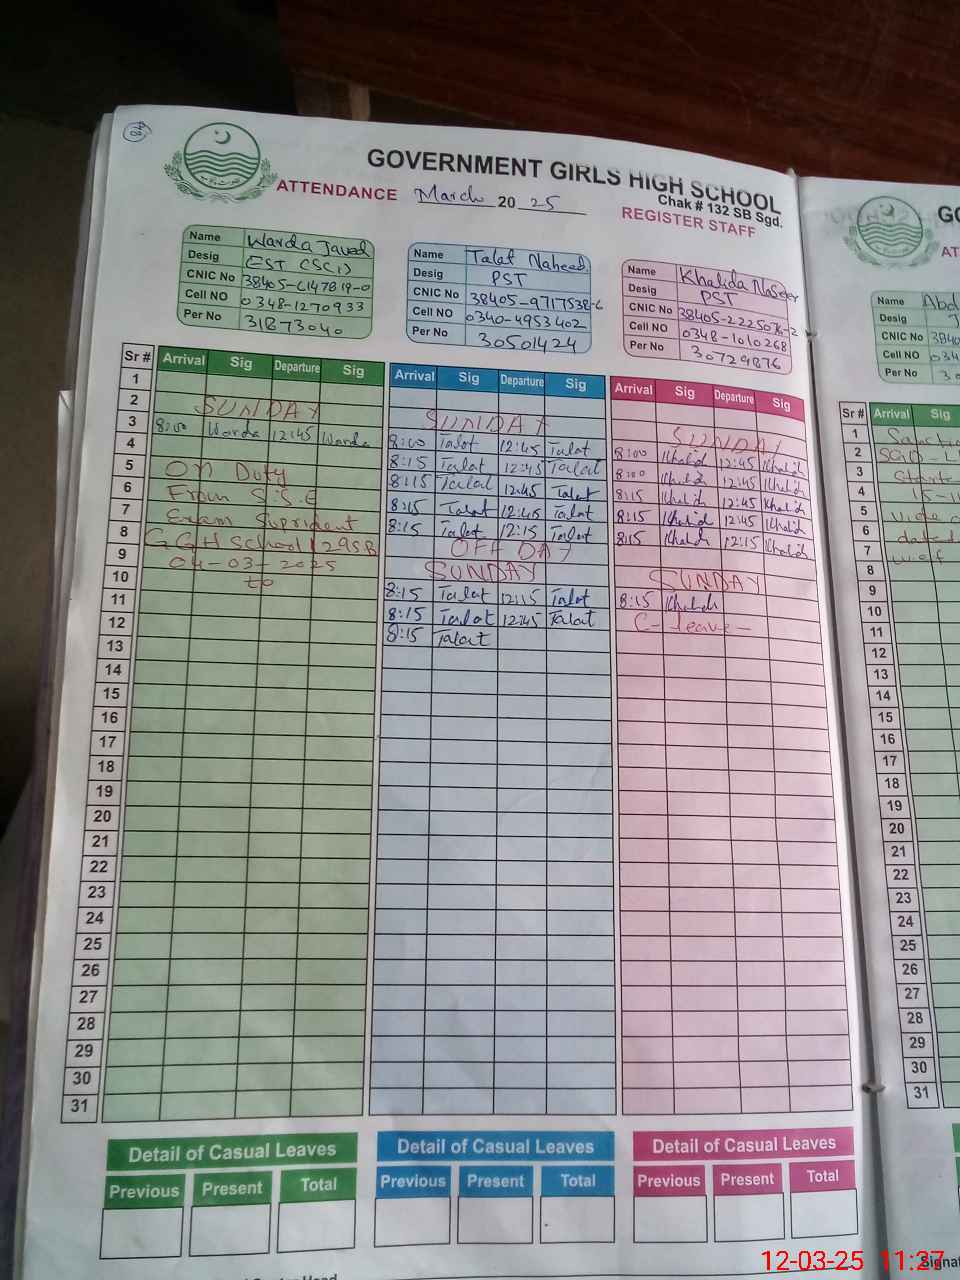 GOVERNMENT GIRLS HIGH SCHOOL
Chak # 132 SB Sgd.
ATTENDANCE March 2025 REGISTER STAFF
Name Warda Javed
Desig EST (SCI)
CNIC No 38405-6147819-0
Cell NO 0348-1270933
Per No 31873040
Name Talat Naheed
Desig PST
CNIC No 38405-9717538-6
Cell NO 0340-4953402
Per No 30501424
Name Khalida Naseer
Desig PST
CNIC No 38405-2225076-2
Cell NO 0348-1010268
Per No 30729876
Sr # Arrival Sig Departure Sig
1
2 SUNDAY
3 8:00 Warda 12:45 Warda
4
5 On Duty
6 From S.S.E
7 Exam Supridient
8 GGH School 129SB
9 04-03-2025
10 to
11
12
13
14
15
16
17
18
19
20
21
22
23
24
25
26
27
28
29
30
31
Arrival Sig Departure Sig
SUNDAY
8:00 Talat 12:45 Talat
8:15 Talat 12:45 Talat
8:15 Talat 12:45 Talat
8:15 Talat 12:45 Talat
8:15 Talat 12:15 Talat
OFF DAY
SUNDAY
8:15 Talat 12:15 Talat
8:15 Talat 12:45 Talat
8:15 Talat
Arrival Sig Departure Sig
SUNDAY
8:00 Khalid 12:45 Khalid
8:00 Khalid 12:45 Khalid
8:15 Khalid 12:45 Khalid
8:15 Khalid 12:45 Khalid
8:15 Khalid 12:15 Khalid
SUNDAY
8:15 Khalid
C-leave-
Detail of Casual Leaves
Previous Present Total
Detail of Casual Leaves
Previous Present Total
Detail of Casual Leaves
Previous Present Total
Head
GO
AT
Name Abd
Desig
CNIC No 3840
Cell NO 034
Per No 30
Sr # Arrival Sig
1 Sanctio
2
3 Starte
4 15-11
5 vide
6 dated
7 w.e.f
8
9
10
11
12
13
14
15
16
17
18
19
20
21
22
23
24
25
26
27
28
29
30
31
Signa
12-03-25 11:27